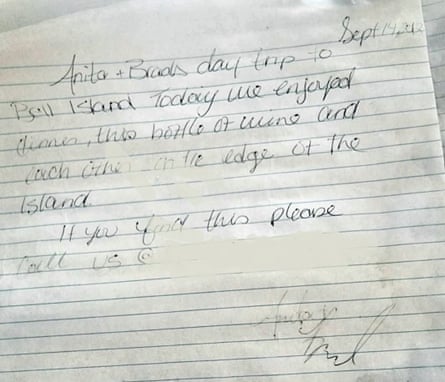 Sept 14, 2012
Anita + Brads day trip to
Bell Island Today we enjoyed
dinner, this bottle of wine and
each other on the edge of the
Island
If you find this please
call us @
Anita &
Brad